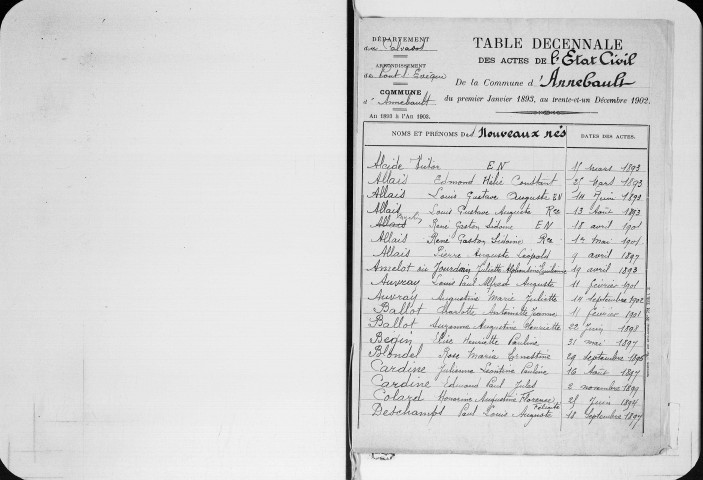 DÉPARTEMENT
du Calvados
ARRONDISSEMENT
de Pont l'Evêque
COMMUNE
d'Annebault
An 1893 à l'An 1902.
TABLE DECENNALE
DES ACTES DE l'Etat Civil
De la Commune d'Annebault
du premier Janvier 1893, au trente-et-un Décembre 1902.
NOMS ET PRÉNOMS DES Nouveaux nés DATES DES ACTES.
Alcide Victor E N 17 mars 1893
Allais Edmond Constant 27 Mars 1893
Allais Louis Gustave Auguste E N 14 Juin 1893
Allais Louis Gustave Auguste Rce 13 Août 1893
Allais René Gaston Sidoine E N 18 avril 1901
Allais René Gaston Sidoine Rce mai 1901
Allais Pierre Auguste Léopold 9 avril 1897
Amelot ou Jourdain Juliette 19 avril 1893
Auvray Louis Paul Alfred Auguste 11 février 1901
Auvray Augustine Marie Juliette 14 septembre 1902
Ballot Charlotte Antoinette Jeanne 11 février 1901
Ballot Suzanne Augustine Henriette 22 Juin 1898
Begin Elise Henriette Pauline 31 mai 1897
Blondel Rose Maria Ernestine 29 septembre 1895
Cardine Julienne Léontine Pauline 16 Août 1897
Cardine Edmond Paul Jules 2 novembre 1899
Colard Honorine Augustine Florence Juin 1894
Deschamps Paul Louis Auguste 18 Septembre 1897